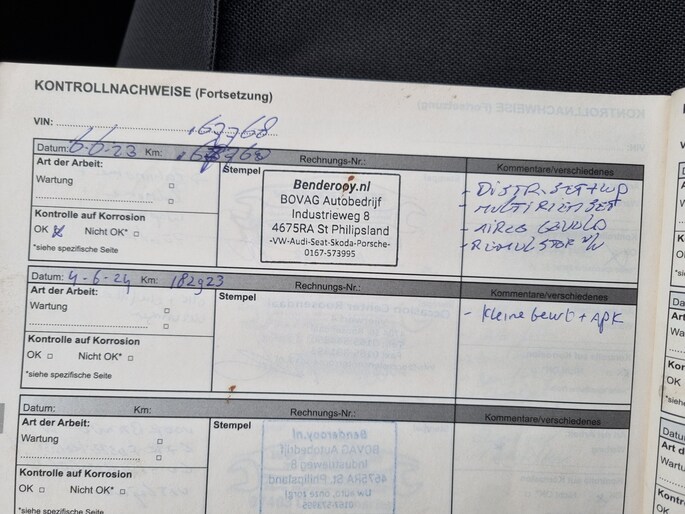 KONTROLLNACHWEISE (Fortsetzung)
VIN:
167768
Datum: 6-6-23 Km: Rechnungs-Nr.: Kommentare/verschiedenes
Art der Arbeit: Stempel
Wartung
Kontrolle auf Korrosion
OK Nicht OK*
*siehe spezifische Seite
Benderooy.nl
BOVAG Autobedrijf
Industrieweg 8
4675RA St Philipsland
-VW-Audi-Seat-Skoda-Porsche-
0167-573995
- DISTR.SET+WP
- MULTIRIEMSET
- AIRCO GEVULD
Datum: 4-6-24 Km: 182923 Rechnungs-Nr.: Kommentare/verschiedenes
Art der Arbeit: Stempel
Wartung
Kontrolle auf Korrosion
OK Nicht OK*
*siehe spezifische Seite
- Kleine beurt + APK
Datum: Km: Rechnungs-Nr.: Kommentare/verschiedenes
Art der Arbeit: Stempel
Wartung
Kontrolle auf Korrosion
OK Nicht OK*
*siehe spezifische Seite